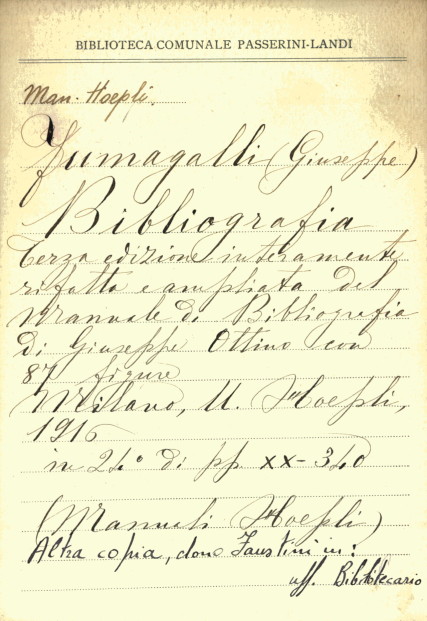 BIBLIOTECA COMUNALE PASSERINI-LANDI
Man. Hoepli.
Fumagalli (Giuseppe)
Bibliografia
Terza edizione interamente
rifatta e ampliata del
Manuale di Bibliografia
di Giuseppe Ottino con
87 figure
Milano, U. Hoepli,
1916
in 24° di pp XX-340
(Manuali Hoepli)
Altra copia, dono Faustini in:
uff. Bibliotecario